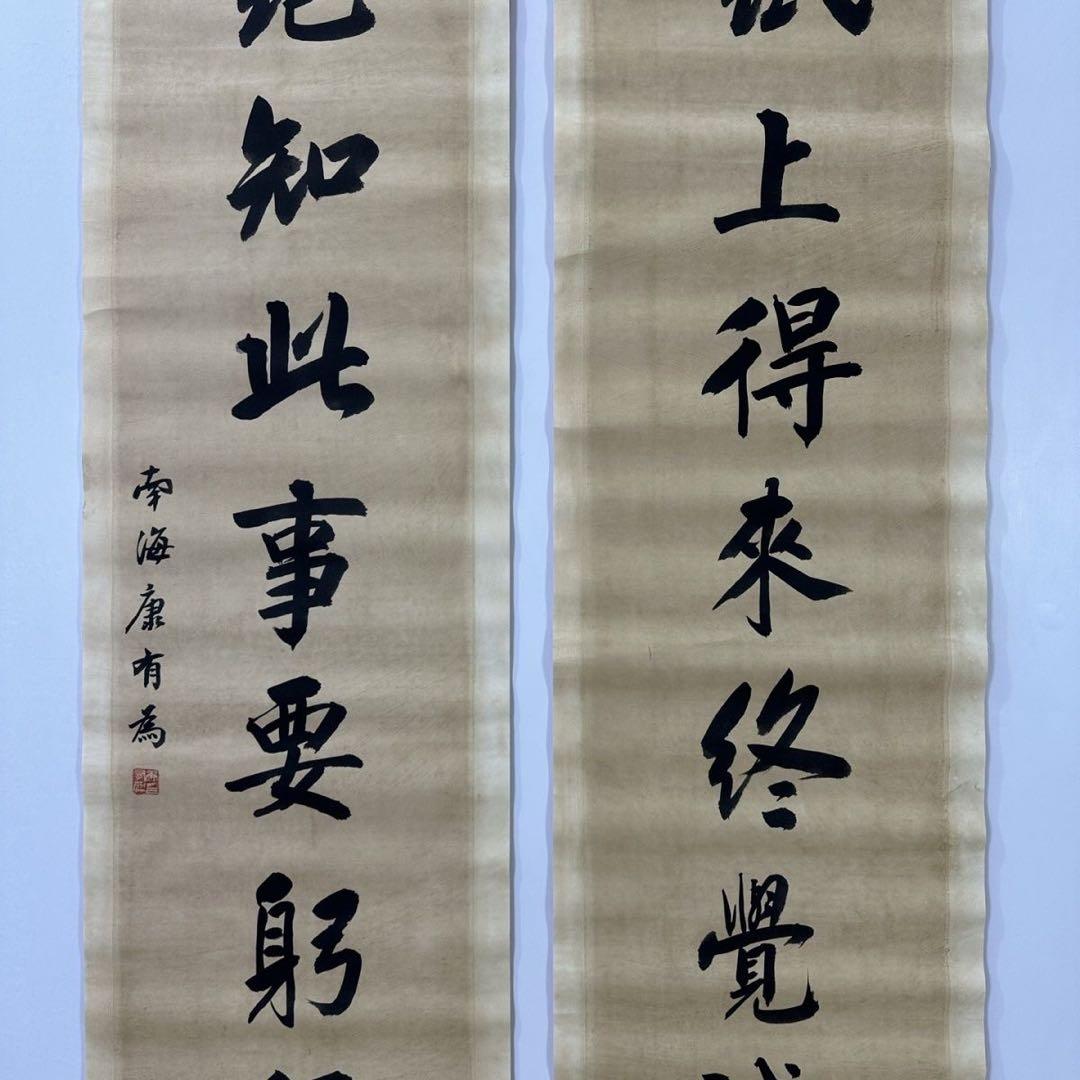 上得來終覺
知此事要躬
南海康有為